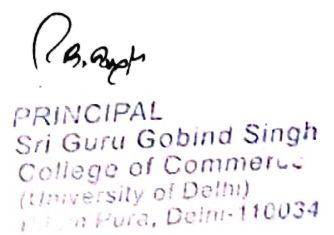 PRINCIPAL
Sri Guru Gobind Singh
College of Commerce
(University of Delhi)
Pura, Delhi-110034